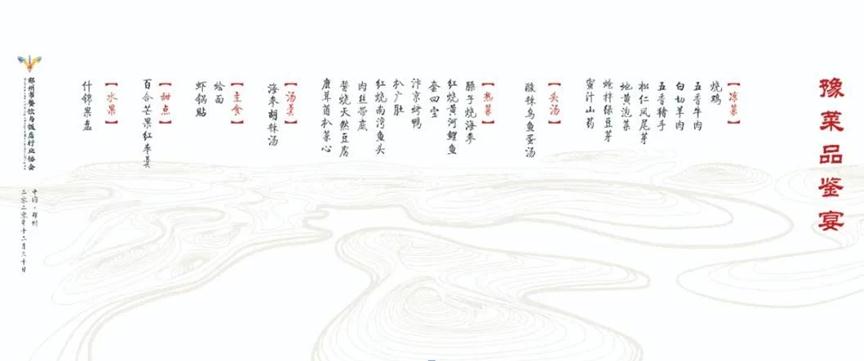 豫菜品鉴宴
【凉菜】
烧鸡
五香牛肉
白切羊肉
五香猪手
松仁凤尾芽
地黄泡菜
炝拌绿豆芽
蜜汁山药
【头汤】
酸辣乌鱼蛋汤
【热菜】
臊子烧海参
红烧黄河鲤鱼
套四宝
汴京烤鸭
扒广肚
红烧南湾鱼头
肉丝带底
酱烧天然豆腐
唐茸茵扒菜心
【汤羹】
海参胡辣汤
【主食】
烩面
虾锅贴
【甜点】
百合芒果红枣羹
【水果】
什锦果盘
郑州市餐饮与饭店行业协会
中国·郑州
二零二零年十二月三十日